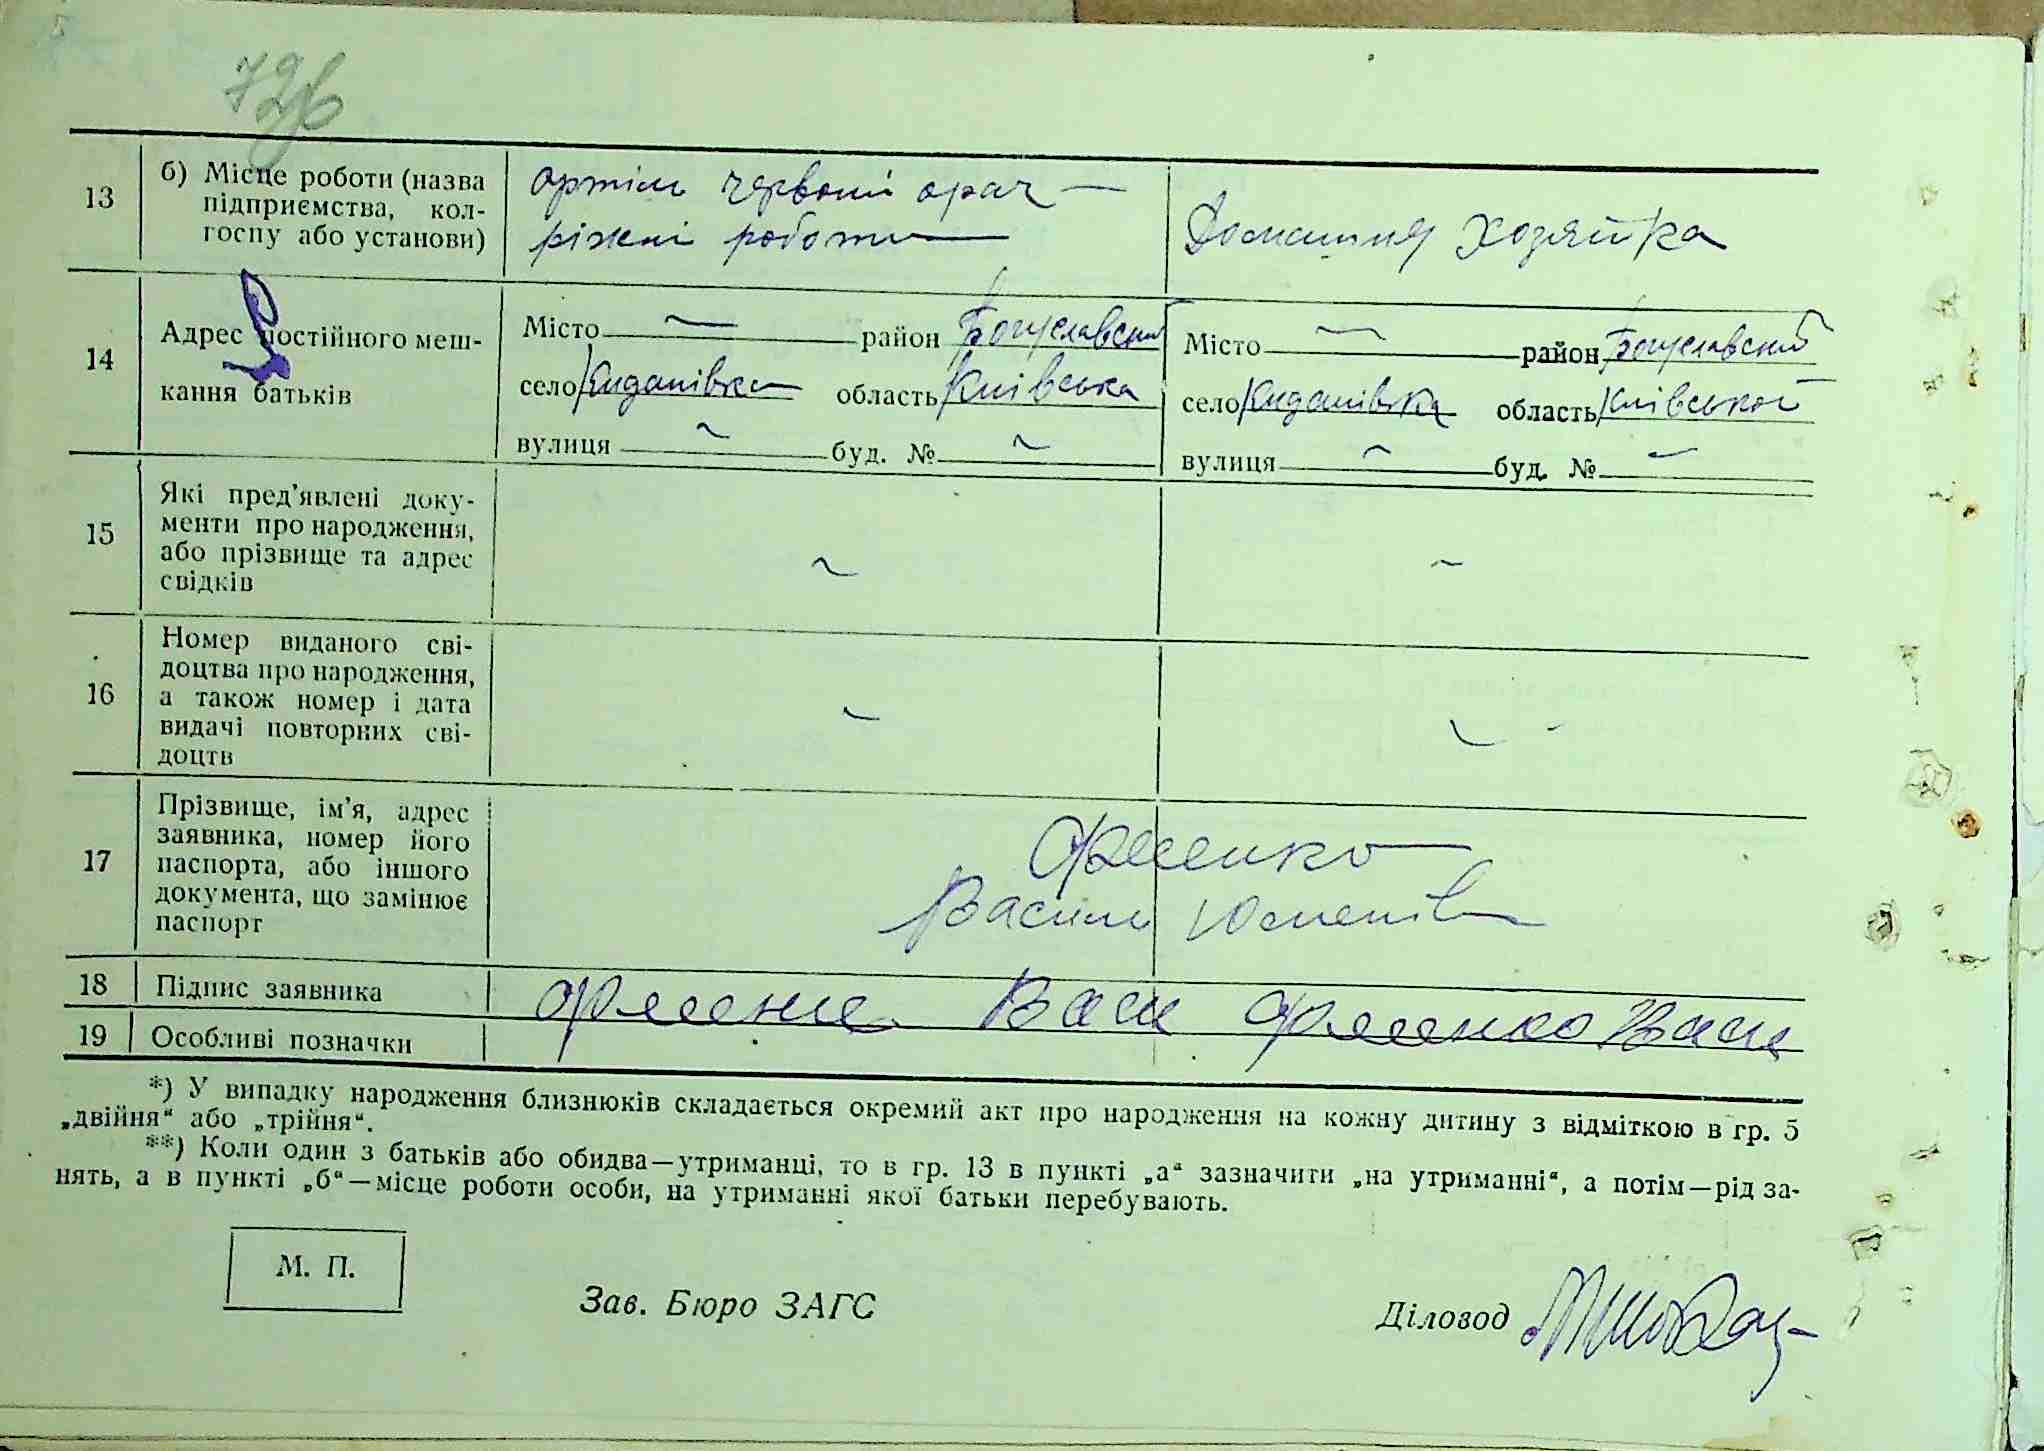 13
б) Місце роботи (назва
підприємства, кол-
госпу або установи)
артіль червоний орач —
ріжні роботи
Домашня хозяйка
14
Адрес постійного меш-
кання батьків
Місто ~ район Богуславский
село Кидановка область Київська
вулиця ~ буд. № ~
Місто ~ район Богуславский
село Киданівка область Київської
вулиця ~ буд. № ~
15
Які пред'явлені доку-
менти про народження,
або прізвище та адрес
свідків
~ ~
16
Номер виданого сві-
доцтва про народження,
а також номер і дата
видачі повторних сві-
доцтв
~ ~
17
Прізвище, ім'я, адрес
заявника, номер його
паспорта, або іншого
документа, що замінює
паспорт
Василь
18 Підпис заявника
19 Особливі позначки
*) У випадку народження близнюків складається окремий акт про народження на кожну дитину з відміткою в гр. 5
„двійня“ або „трійня“.
**) Коли один з батьків або обидва—утриманці, то в гр. 13 в пункті „а“ зазначити „на утриманні“, а потім—рід за-
нять, а в пункті „б“—місце роботи особи, на утриманні якої батьки перебувають.
М. П.
Зав. Бюро ЗАГС
Діловод